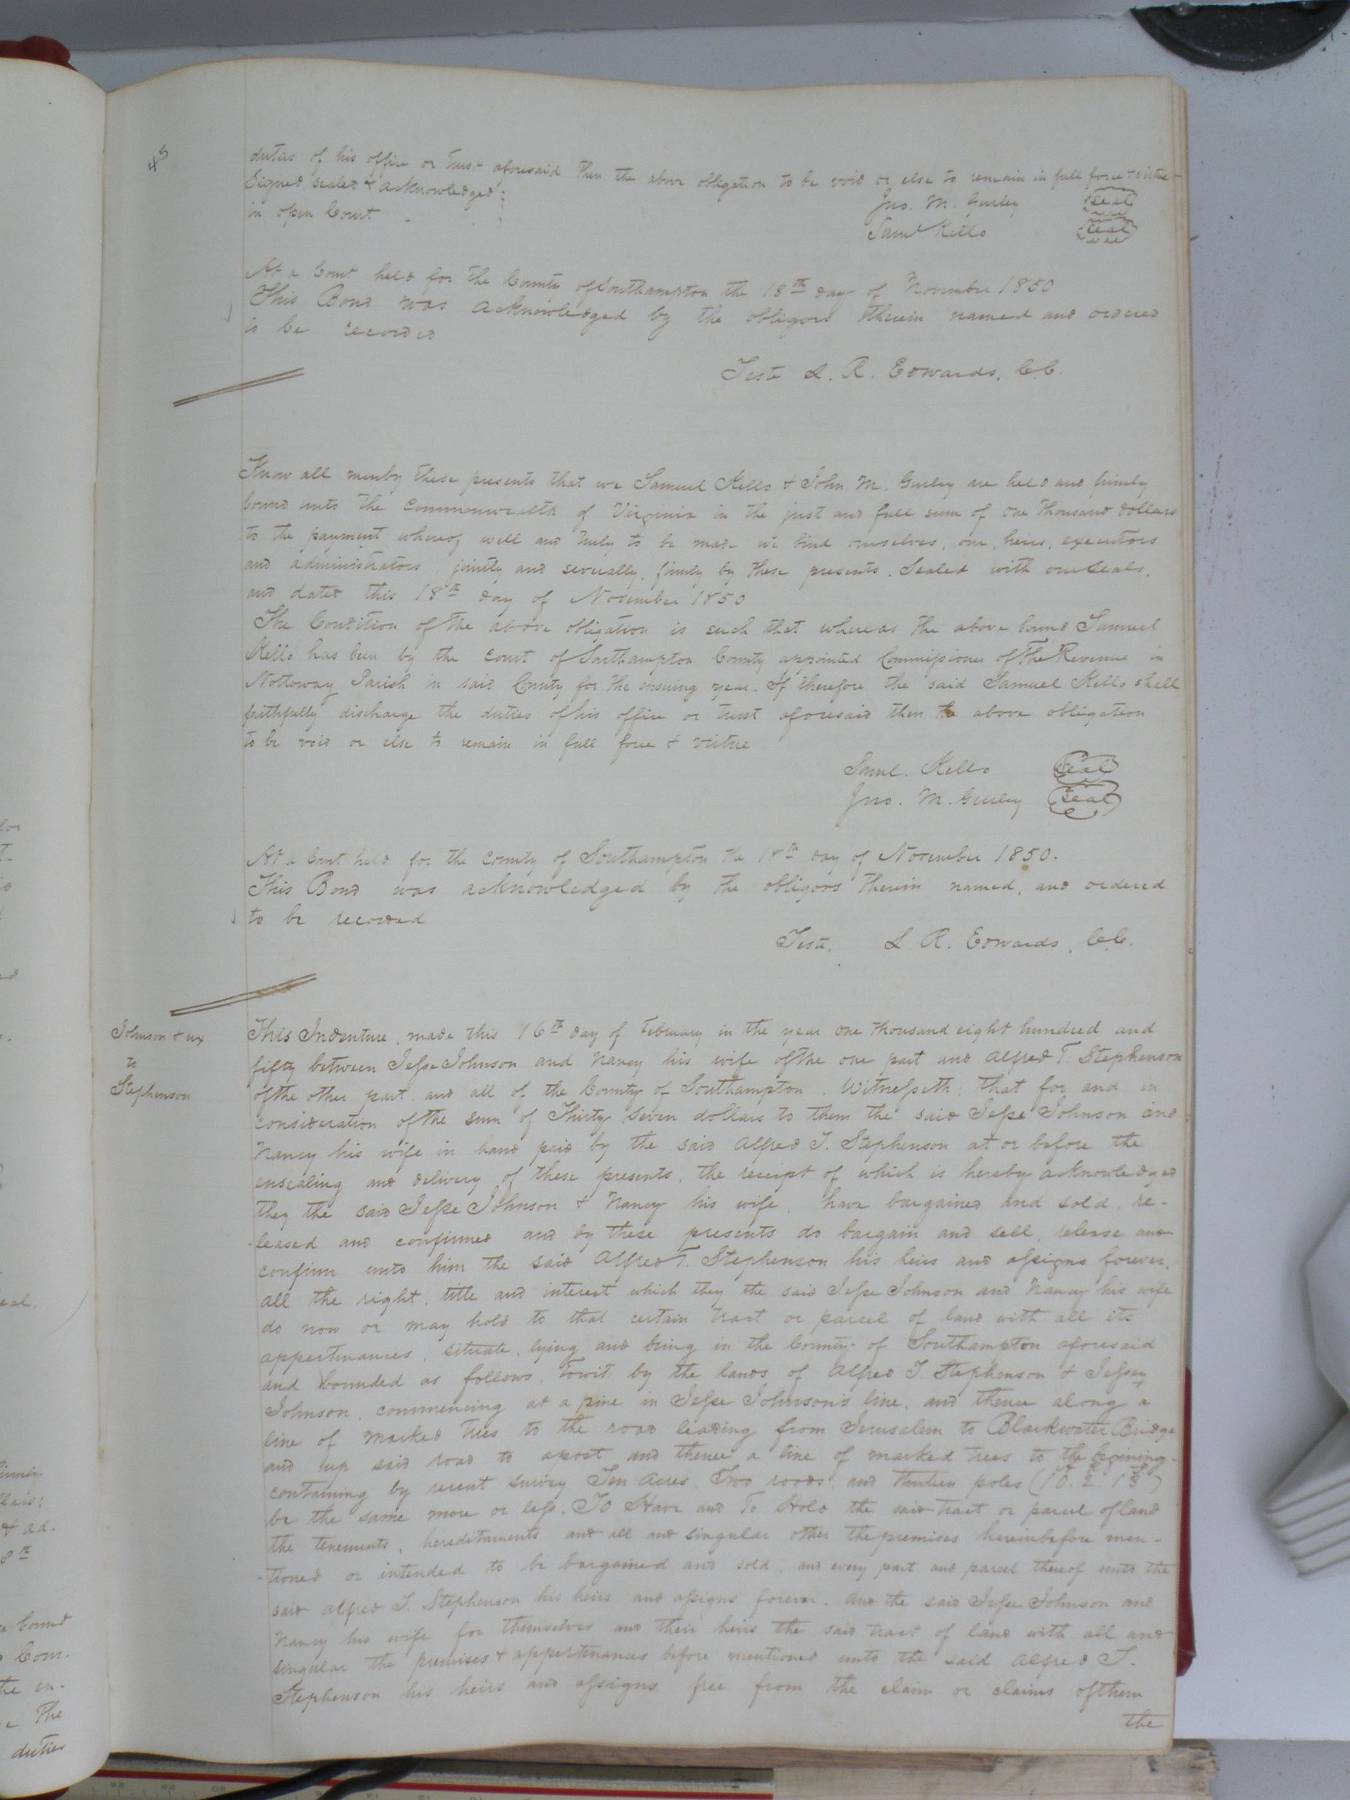 45
duties of his office or trust aforesaid then the above obligation to be void or else to remain in full force & virtue
Signed sealed & acknowledged
in open Court
Jno. M. Gurley Seal
Saml Kello Seal
At a Court held for the County of Southampton the 18th day of November 1850
This Bond was acknowledged by the obligors therein named and ordered
to be recorded
Teste L. R. Edwards, C.C.
Know all men by these presents that we Samuel Kello & John M. Gurley are held and firmly
bound unto the Commonwealth of Virginia in the just and full sum of one thousand dollars
to the payment whereof well and truly to be made we bind ourselves, our, heirs, executors
and administrators, jointly and severally, firmly by these presents. Sealed with our seals,
and dated this 18th day of November 1850
The Condition of the above obligation is such that whereas the above bound Samuel
Kello has been by the court of Southampton County appointed Commissioner of the Revenue in
Nottoway Parish in said County for the ensuing year. If therefore the said Samuel Kello shall
faithfully discharge the duties of his office or trust aforesaid then the above obligation
to be void or else to remain in full force & virtue
Saml. Kello Seal
Jno. M. Gurley Seal
At a Court held for the County of Southampton the 18th day of November 1850.
This Bond was acknowledged by the obligors therein named, and ordered
to be recorded
Teste, L R. Edwards, C.C.
Johnson & ux
to
Stephenson
This Indenture, made this 16th day of February in the year one thousand eight hundred and
fifty between Jesse Johnson and Nancy his wife of the one part and Alfred T. Stephenson
of the other part, and all of the County of Southampton. Witnesseth, that for and in
consideration of the sum of Thirty seven dollars to them the said Jesse Johnson and
Nancy his wife in hand paid by the said Alfred T. Stephenson at or before the
ensealing and delivery of these presents, the receipt of which is hereby acknowledged
they the said Jesse Johnson & Nancy his wife, have bargained and sold, re-
-leased and confirmed and by these presents do bargain and sell, release and
confirm unto him the said Alfred T. Stephenson his heirs and assigns forever,
all the right, title and interest which they the said Jesse Johnson and Nancy his wife
do now or may hold to that certain tract or parcel of land with all its
appertinances, situate, lying and being in the County of Southampton aforesaid
and bounded as follows, Towit by the lands of Alfred T. Stephenson & Jesse
Johnson, commencing at a pine in Jesse Johnson's line, and thence along a
line of marked trees to the road leading from Jerusalem to Blackwater Bridge
and up said road to a post and thence a line of marked trees to the begining
containing by recent survey Ten acres, Two roods, and thirteen poles (10. 2. 13)
be the same more or less. To Have and To Hold the said tract or parcel of land
the tenements, hereditaments and all and singular other the premises hereinbefore men-
-tioned or intended to be bargained and sold, and every part and parcel thereof unto the
said Alfred T. Stephenson his heirs and assigns forever. And the said Jesse Johnson and
Nancy his wife for themselves and their heirs the said tract of land with all and
singular the premises & appertinances before mentioned unto the said Alfred T.
Stephenson his heirs and assigns free from the claim or claims of them
the